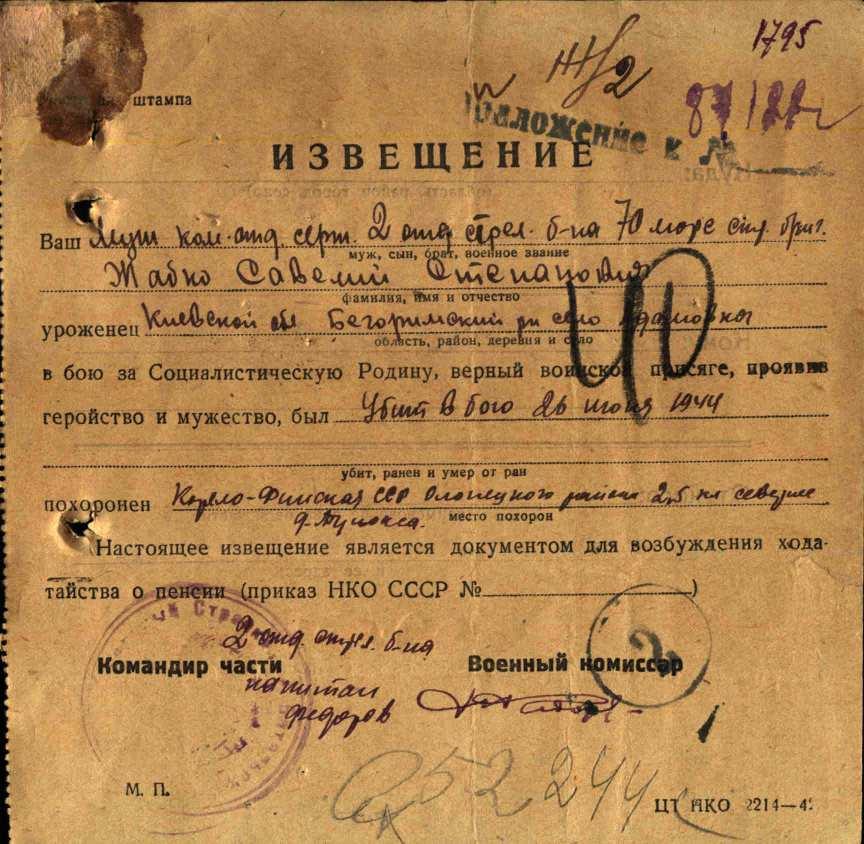 1795
Ж/2
штампа
Приложение к №
ИЗВЕЩЕНИЕ
Ваш муж ком. отд серж. 2 отд стрел. б-на 70 морс стр. бриг.
муж, сын, брат, военное звание
Жабко Савелий Степанович
фамилия, имя и отчество
уроженец Киевской обл село
область, район, деревня и село
в бою за Социалистическую Родину, верный воинской присяге, проявив
геройство и мужество, был Убит в бою 26 июня 1944
убит, ранен и умер от ран
похоронен Карело-Финская ССР Олонецкого района 2,5 км севернее
д. Тулокса.
место похорон
Настоящее извещение является документом для возбуждения хода-
тайства о пенсии (приказ НКО СССР № )
2 отд. стрел. б-на
Командир части Военный комиссар
капитан
Федоров
М. П.
52244
ЦТ НКО 2214—42